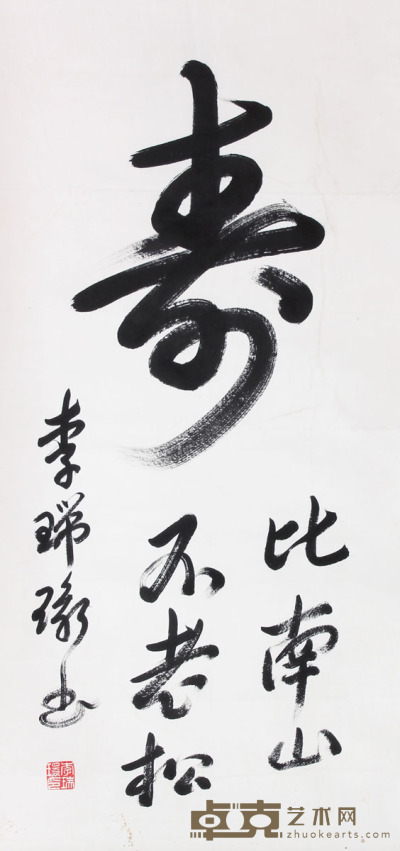 寿
比南山
不老松
李瑞環书
卓克艺术网
zhuokearts.com